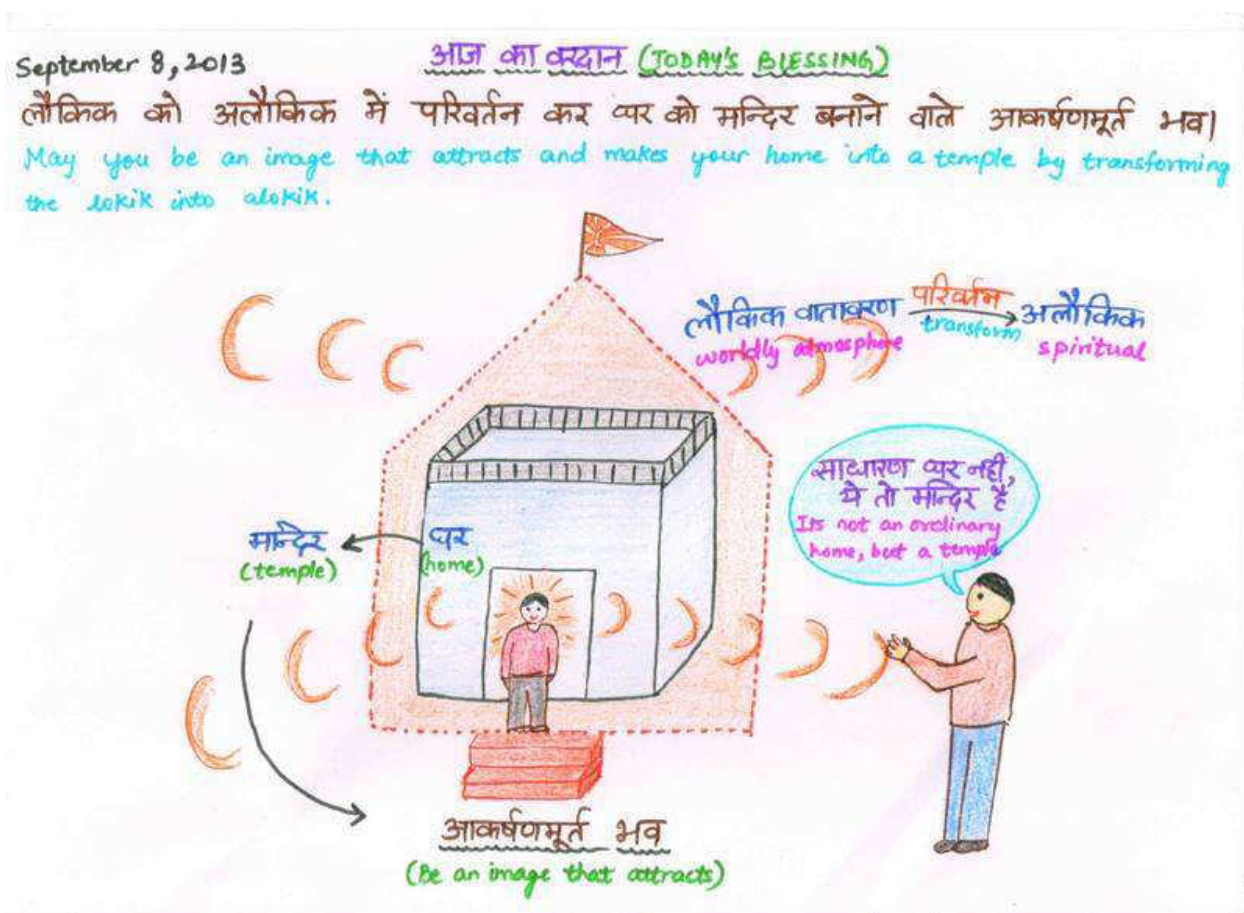 September 8, 2013
आज का वरदान (TODAY'S BLESSING)
लौकिक को अलौकिक में परिवर्तन कर घर को मन्दिर बनाने वाले आकर्षणमूर्त भव।
May you be an image that attracts and makes your home into a temple by transforming
the lokik into alokik.
लौकिक वातावरण परिवर्तन अलौकिक
worldly atmosphere transform spiritual
साधारण घर नहीं,
ये तो मन्दिर है
Its not an ordinary
home, but a temple
मन्दिर घर
(temple) (home)
आकर्षणमूर्त भव
(Be an image that attracts)